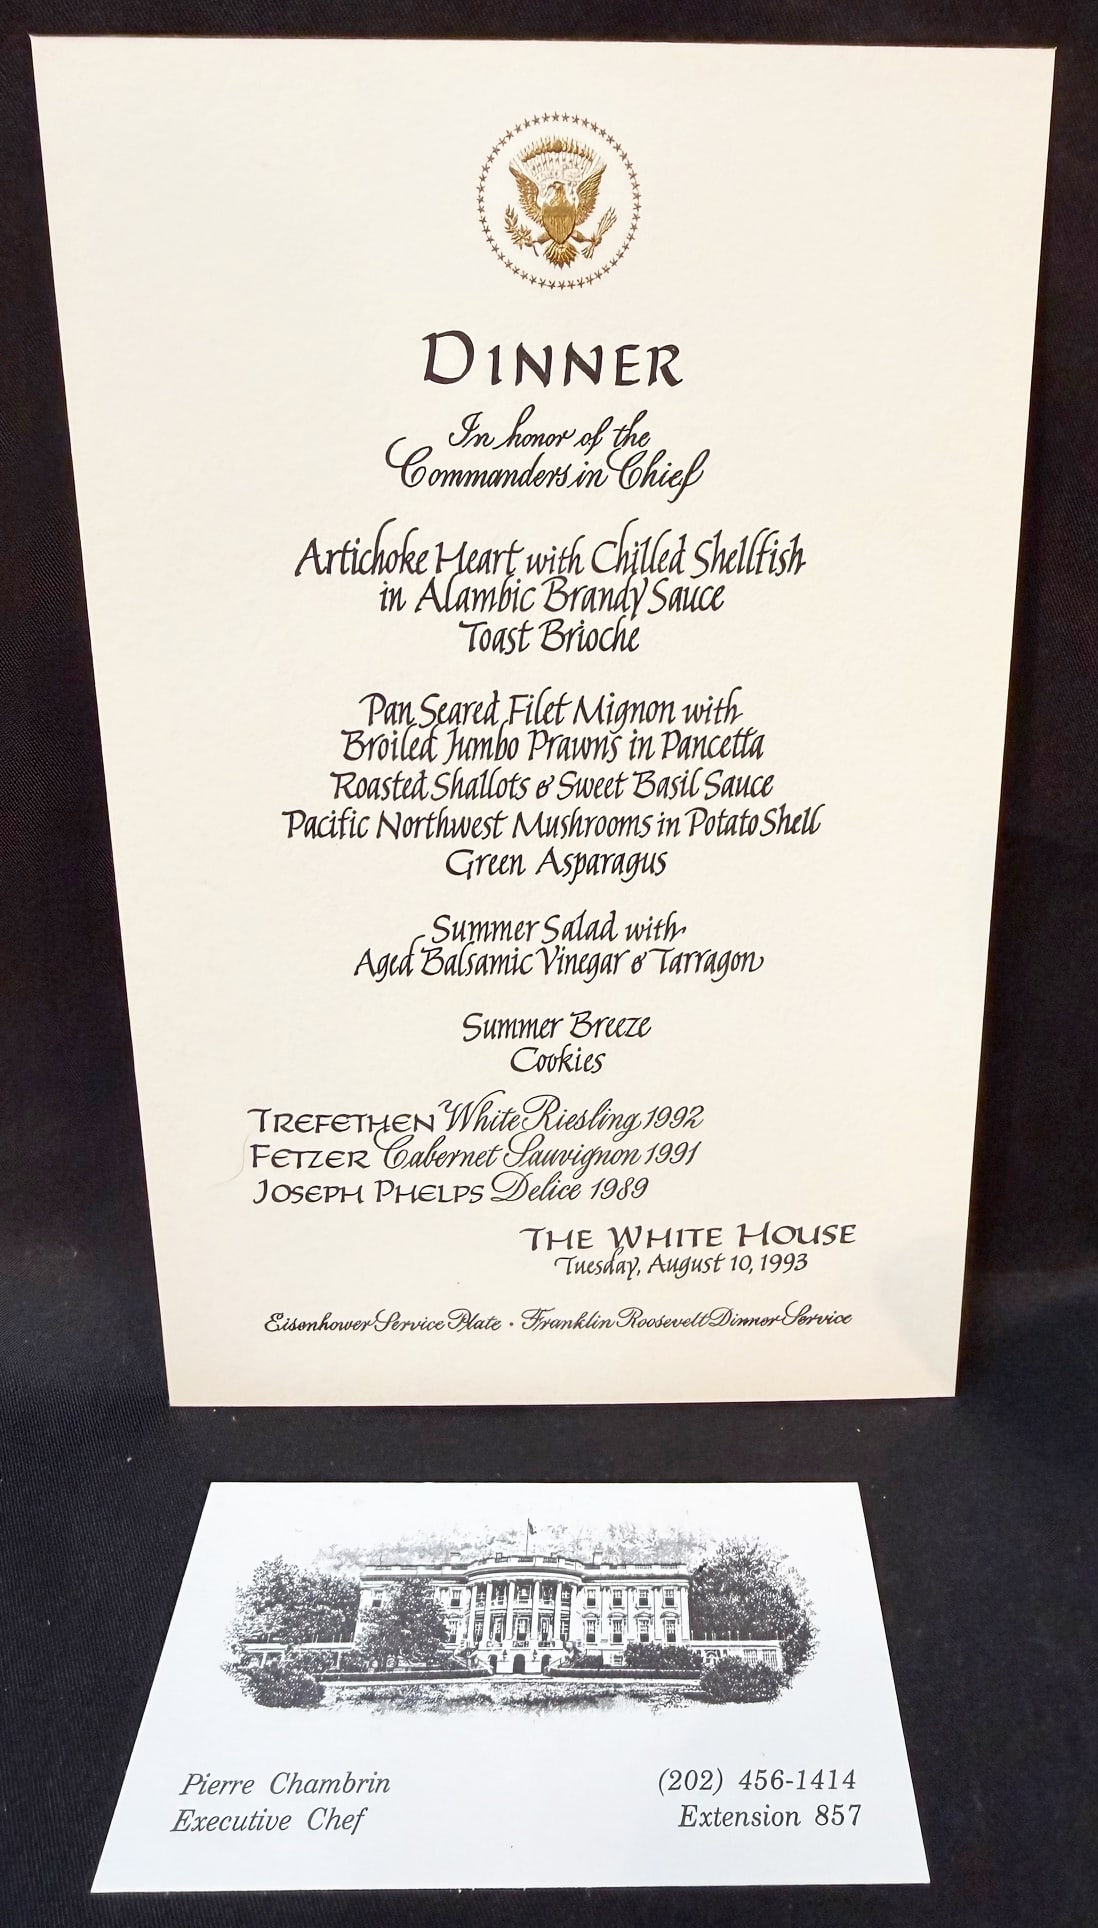 DINNER
In honor of the
Commanders in Chief
Artichoke Heart with Chilled Shellfish
in Alambic Brandy Sauce
Toast Brioche
Pan Seared Filet Mignon with
Broiled Jumbo Prawns in Pancetta
Roasted Shallots & Sweet Basil Sauce
Pacific Northwest Mushrooms in Potato Shell
Green Asparagus
Summer Salad with
Aged Balsamic Vinegar & Tarragon
Summer Breeze
Cookies
TREFETHEN White Riesling 1992
FETZER Cabernet Sauvignon 1991
JOSEPH PHELPS Delice 1989
THE WHITE HOUSE
Tuesday, August 10, 1993
Eisenhower Service Plate · Franklin Roosevelt Dinner Service
Pierre Chambrin (202) 456-1414
Executive Chef Extension 857